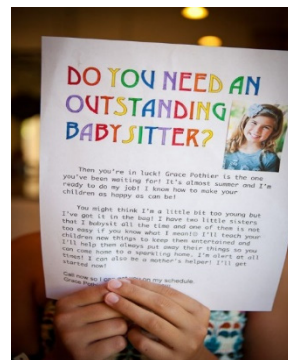 DO YOU NEED AN
OUTSTANDING
BABYSITTER?
Then you're in luck! Grace Pothier is the one
you've been waiting for! It's almost summer and I'm
ready to do my job! I know how to make your
children as happy as can be!
You might think I'm a little bit too young but
I've got it in the bag! I have two little sisters
that I babysit all the time and one of them is not
too easy if you know what I mean!!I I'll teach your
children new things to keep them entertained and
I'll help them always put away their things so you
can come home to a sparkling home. I'm alert at all
times! I can also be a mother's helper! I'll get
started now!
Call now so I can on my schedule.
Grace